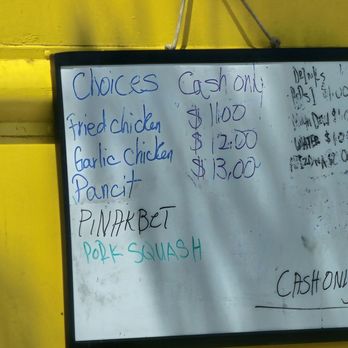 Choices Cash only
$ 11.00
Fried chicken
$ 12.00
Garlic Chicken
$ 13.00
Pancit
PiNAKBET
PORK SQUASH
DRINKS
WATER
CASH ONL